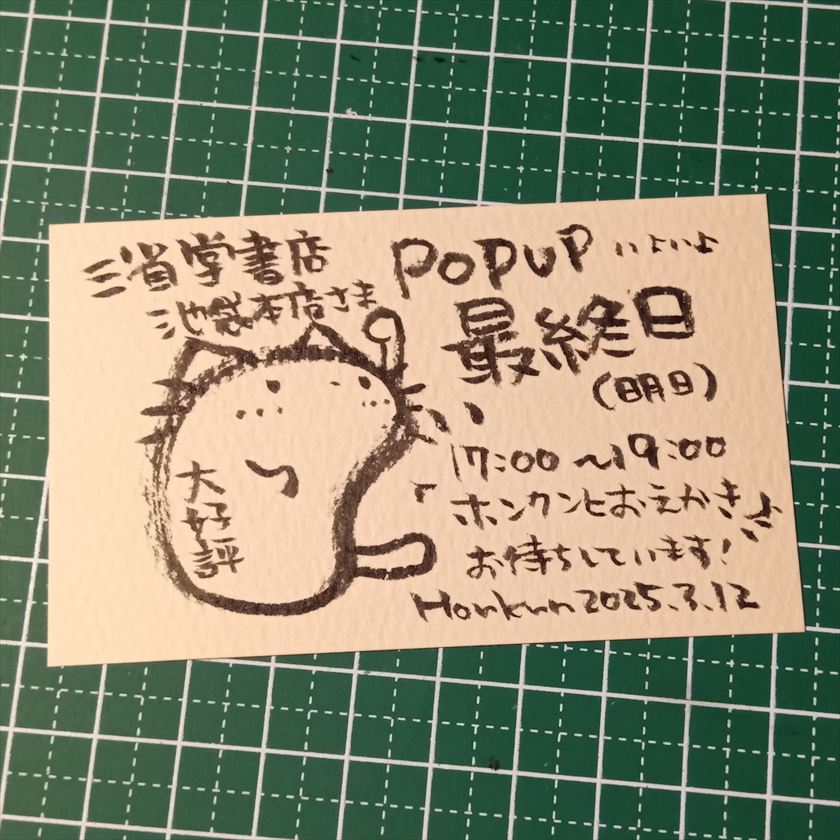 三省堂書店
池袋本店さま
POPUP いよいよ
最終日
(明日)
大好評
17:00〜19:00
「ホンクンとおえかき」
お待ちしています!
Honkun 2025.3.12